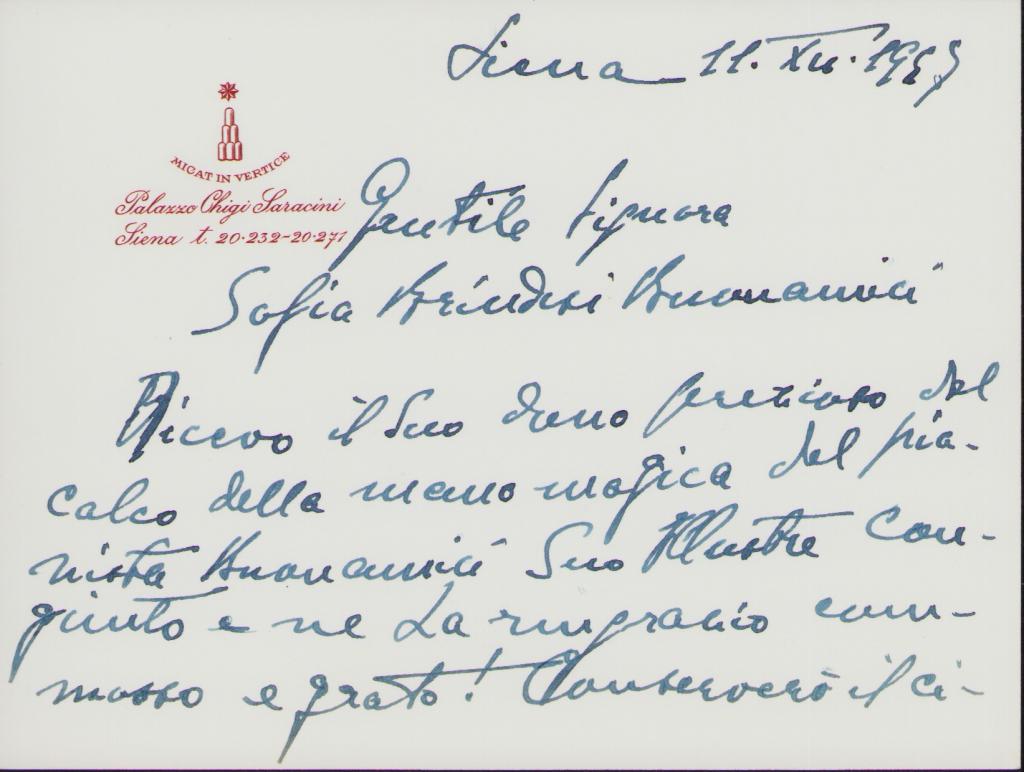 Siena 11. XII. 195
MICAT IN VERTICE
Palazzo Chigi Saracini
Siena t. 20-232-20-271
Gentile Signora
Sofia Brindisi Buonamici
Ricevo il Suo dono prezioso del
calco della mano magica del pia-
nista Buonamici Suo Illustre con-
giunto e ne La ringrazio com-
mosso e grato! Conserverò il ci-